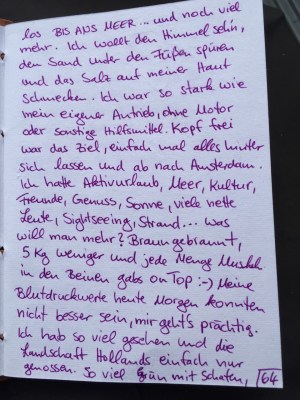 los BIS ANS MEER... und noch viel
mehr. Ich wollt den Himmel seh'n,
den Sand unter den Füßen spüren
und das Salz auf meiner Haut
schmecken. Ich war so stark wie
mein eigener Antrieb, ohne Motor
oder sonstige Hilfsmittel. Kopf frei
war das Ziel, einfach mal alles hinter
sich lassen und ab nach Amsterdam.
Ich hatte Aktivurlaub, Meer, Kultur,
Freunde, Genuss, Sonne, viele nette
Leute, Sightseeing, Strand... was
will man mehr? Braungebrannt,
5 Kg weniger und jede Menge Muskeln
in den Beinen gabs on Top :-) Meine
Blutdruckwerte heute Morgen konnten
nicht besser sein, mir geht's prächtig.
Ich hab so viel gesehen und die
Landschaft Hollands einfach nur
genossen. So viel Grün mit Schafen, 64